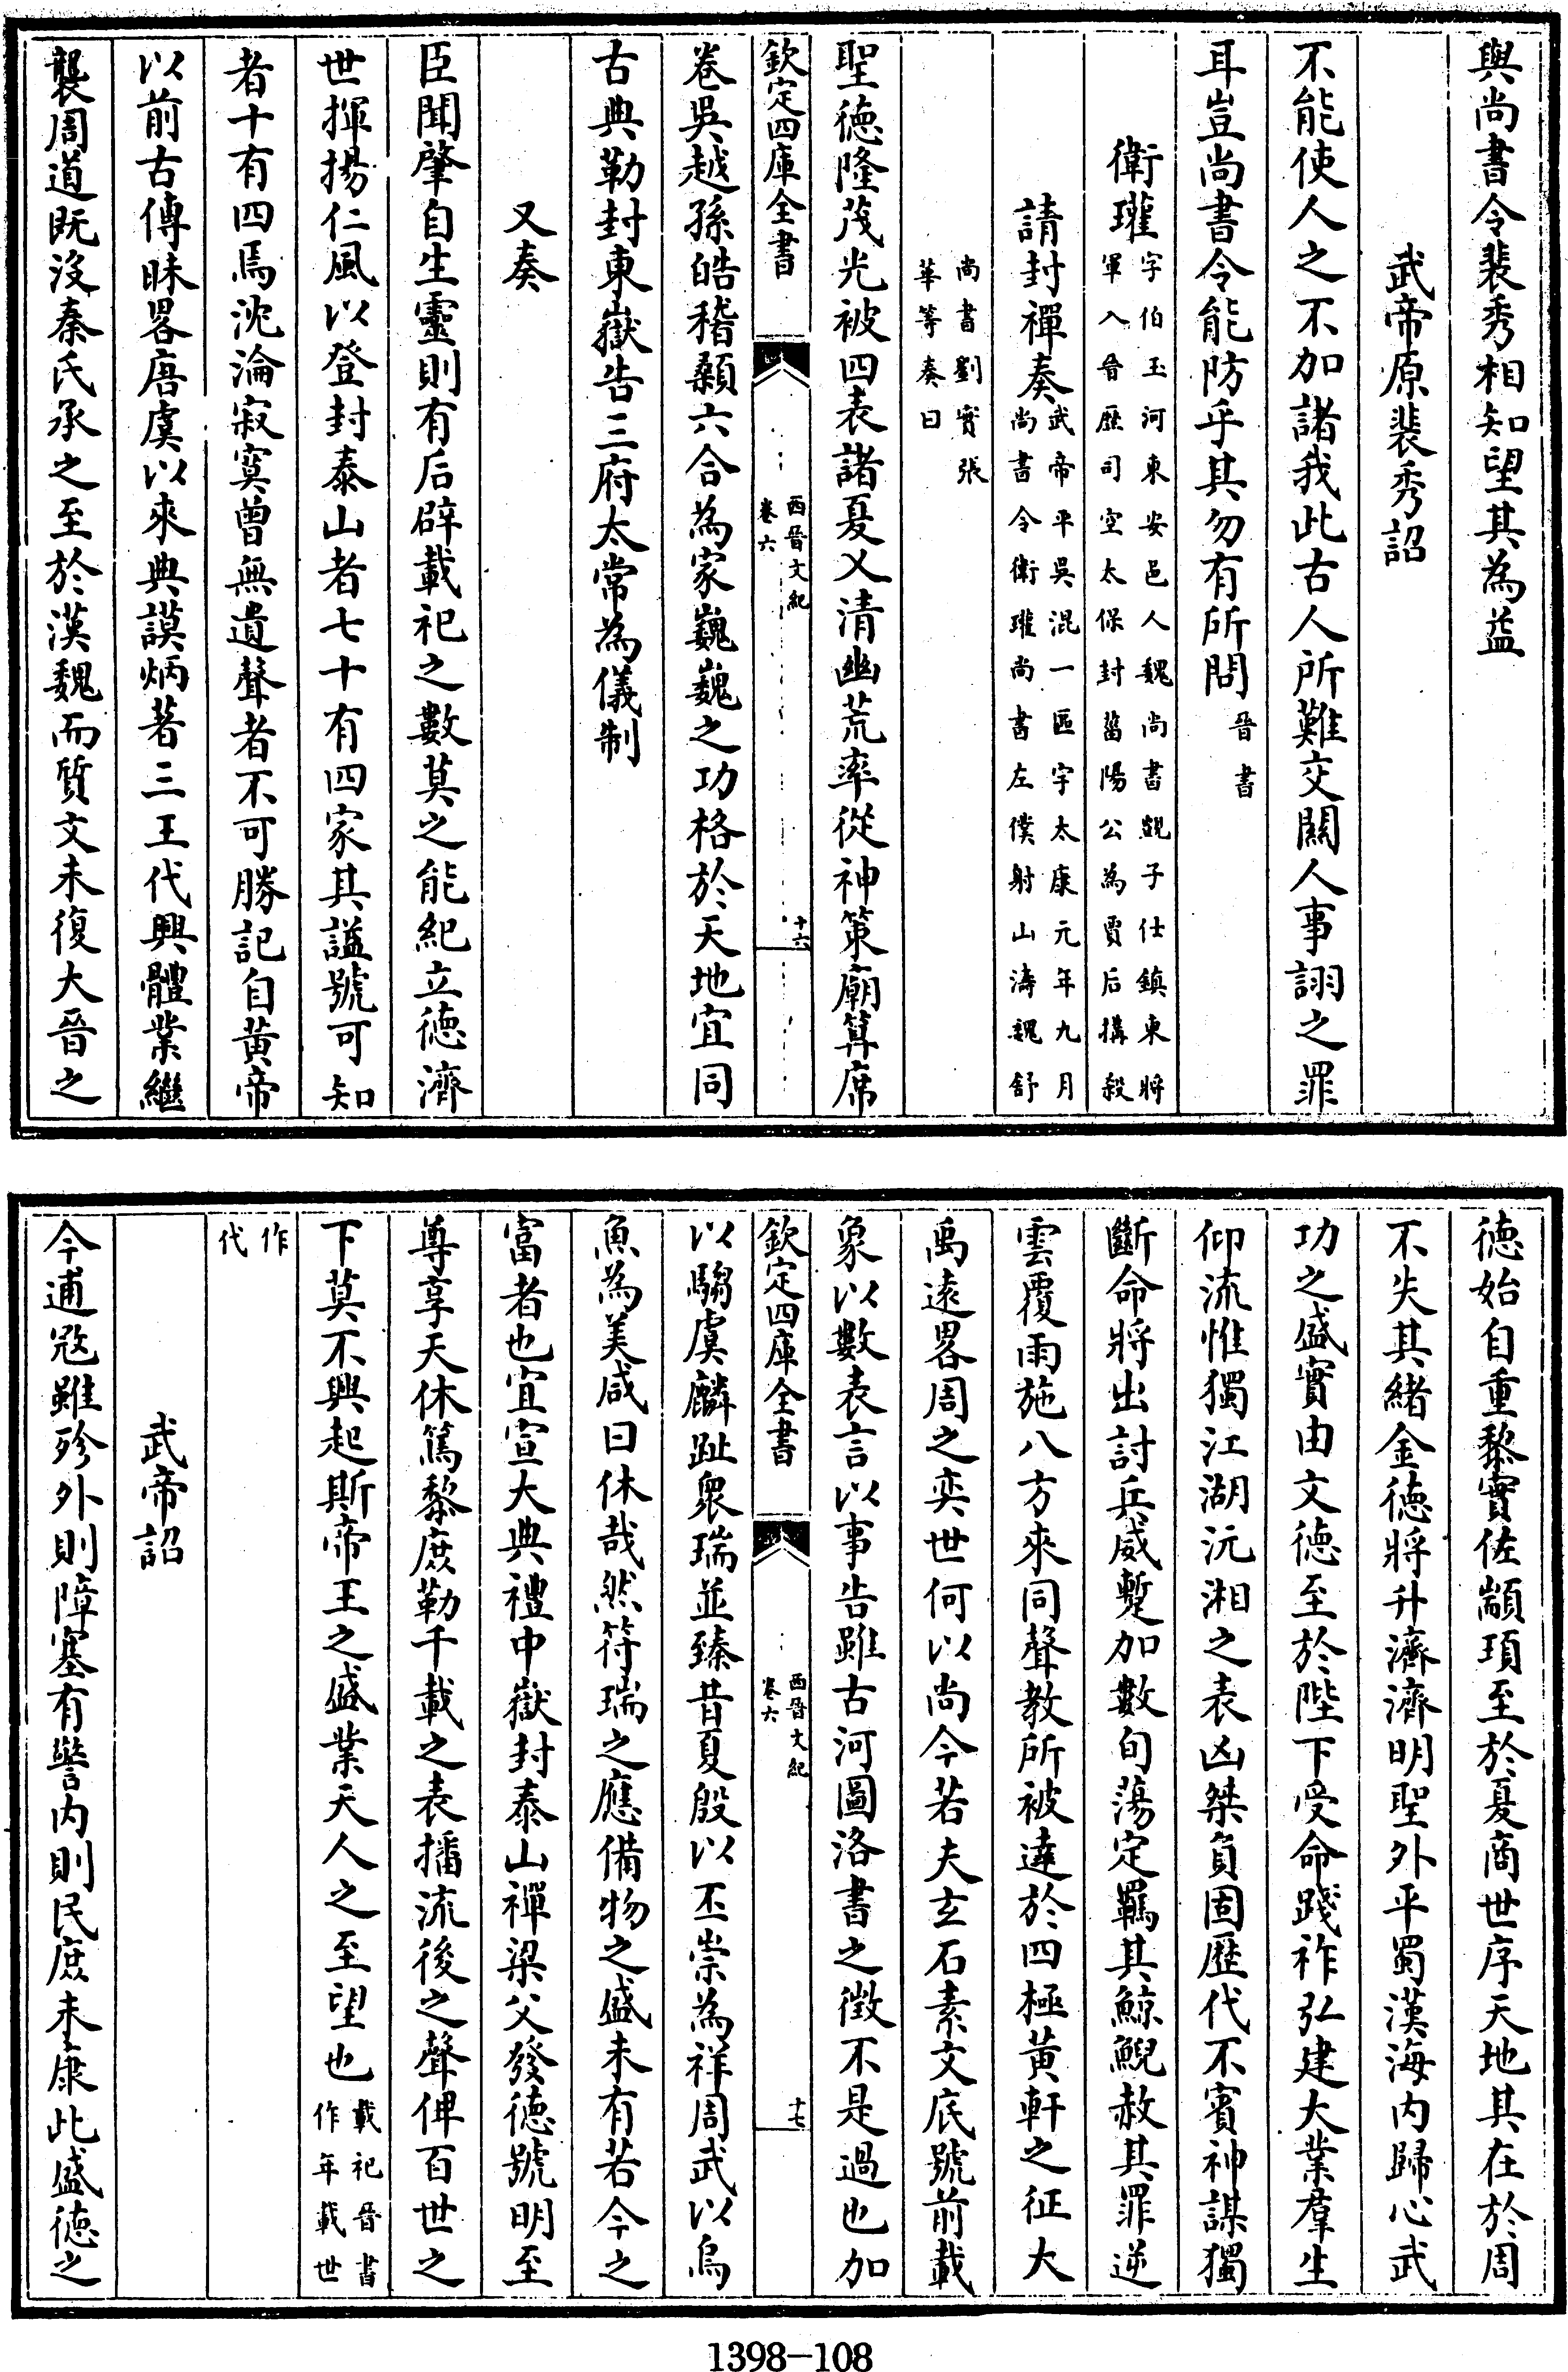 與尚書令裴秀相知望其為益
武帝原裴秀詔
不能使人之不加諸我此古人所難交關人事詡之罪
耳豈尚書令能防乎其勿有所問晉書
衛瓘字伯玉河東安邑人魏尚書覬子仕鎮東將
軍入晉歴司空太保封菑陽公為賈后搆殺
請封禪奏武帝平吳混一區宇太康元年九月
尚書令衛瓘尚書左僕射山濤魏舒
尚書劉實張
華等奏曰
聖德隆茂光被四表諸夏乂清幽荒率從神策廟算席
欽定四庫全書
西晉文紀
卷六
十六
卷吳越孫皓稽顙六合為家巍巍之功格於天地宜同
古典勒封東嶽告三府太常為儀制
又奏
臣聞肇自生靈則有后辟載祀之數莫之能紀立德濟
世揮揚仁風以登封泰山者七十有四家其謚號可知
者十有四焉沈淪寂寞曾無遺聲者不可勝記自黃帝
以前古傳昧畧唐虞以來典謨炳著三王代興體業繼
襲周道既沒秦氏承之至於漢魏而質文未復大晉之
德始自重黎實佐顓頊至於夏商世序天地其在於周
不失其緒金德將升濟濟明聖外平蜀漢海內歸心武
功之盛實由文德至於陛下受命踐祚弘建大業羣生
仰流惟獨江湖沅湘之表凶桀負固歷代不賓神謀獨
斷命將出討兵威蹔加數旬蕩定羈其鯨鯢赦其罪逆
雲覆雨施八方來同聲教所被達於四極黃軒之征大
禹遠畧周之奕世何以尚今若夫玄石素文底號前載
象以數表言以事告雖古河圖洛書之徵不是過也加
欽定四庫全書
西晉文紀
卷六
十七
以騶虞麟趾衆瑞並臻昔夏殷以丕崇為祥周武以烏
魚為美咸曰休哉然符瑞之應備物之盛未有若今之
富者也宜宣大典禮中嶽封泰山禪梁父發德號明至
尊享天休篤黎庶勒千載之表播流後之聲俾百世之
下莫不興起斯帝王之盛業天人之至望也載祀晉書
作年載世
作
代
武帝詔
今逋寇雖殄外則障塞有警內則民庶未康此盛德之
1398-108